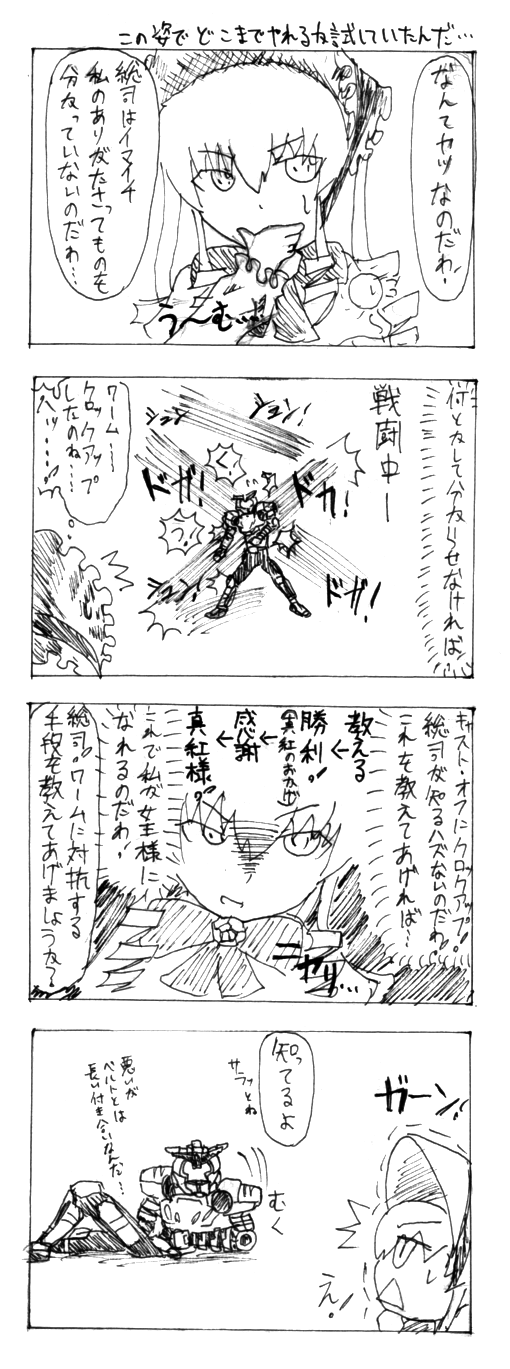 この姿でどこまでやれるか試していたんだ…
なんてヤツなのだわ!
総司はイマイチ
私のありがたさってものを
分かっていないのだわ…
う〜む…
何とかして分からせなければ
戦闘中ー
シュン!
シュン
ドカ!
ドガ!
く!
っ!
シュン!
ドガ!
ワーム…
クロックアップ
したのね…
ハッ…!
キャスト・オフにクロックアップ!
総司が知るハズないのだわ!
これを教えてあげれば…
教える
←
勝利!
(真紅のおかげ)
←
感謝
←
真紅様!
これで私が女王様に
なれるのだわ!
ニヤリ…
総司!ワームに対抗する
手段を教えてあげましょうか?
ガーン!
え!
知ってるよ
サラッとね
むく
悪いが
ベルトとは
長い付き合いなんだ…